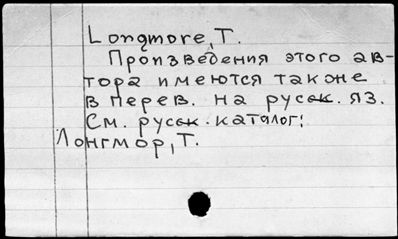 Longmore, T.
Произведения этого ав-
тора имеются также
в перев. на русск. яз.
См. русск. каталог:
Лонгмор, Т.